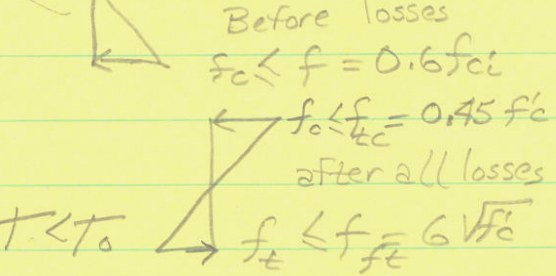 Before losses
fc ≤ f = 0.6 fci
fc ≤ ftc = 0.45 f'c
after all losses
T < To
ft ≤ fft = 6 √f'c